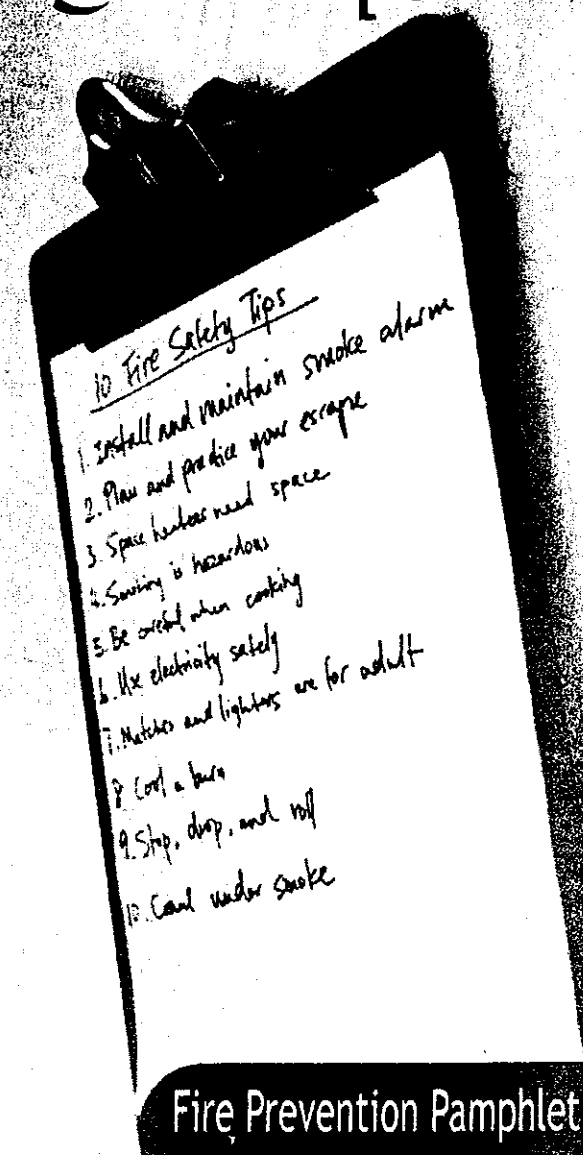 10 Fire Safety Tips
1. Install and maintain smoke alarm
2. Plan and practice your escape
3. Space heaters need space
4. Smoking is hazardous
5. Be careful when cooking
6. Use electricity safely
7. Matches and lighters are for adult
8. Cool a burn
9. Stop, drop, and roll
10. Crawl under smoke
Fire Prevention Pamphlet